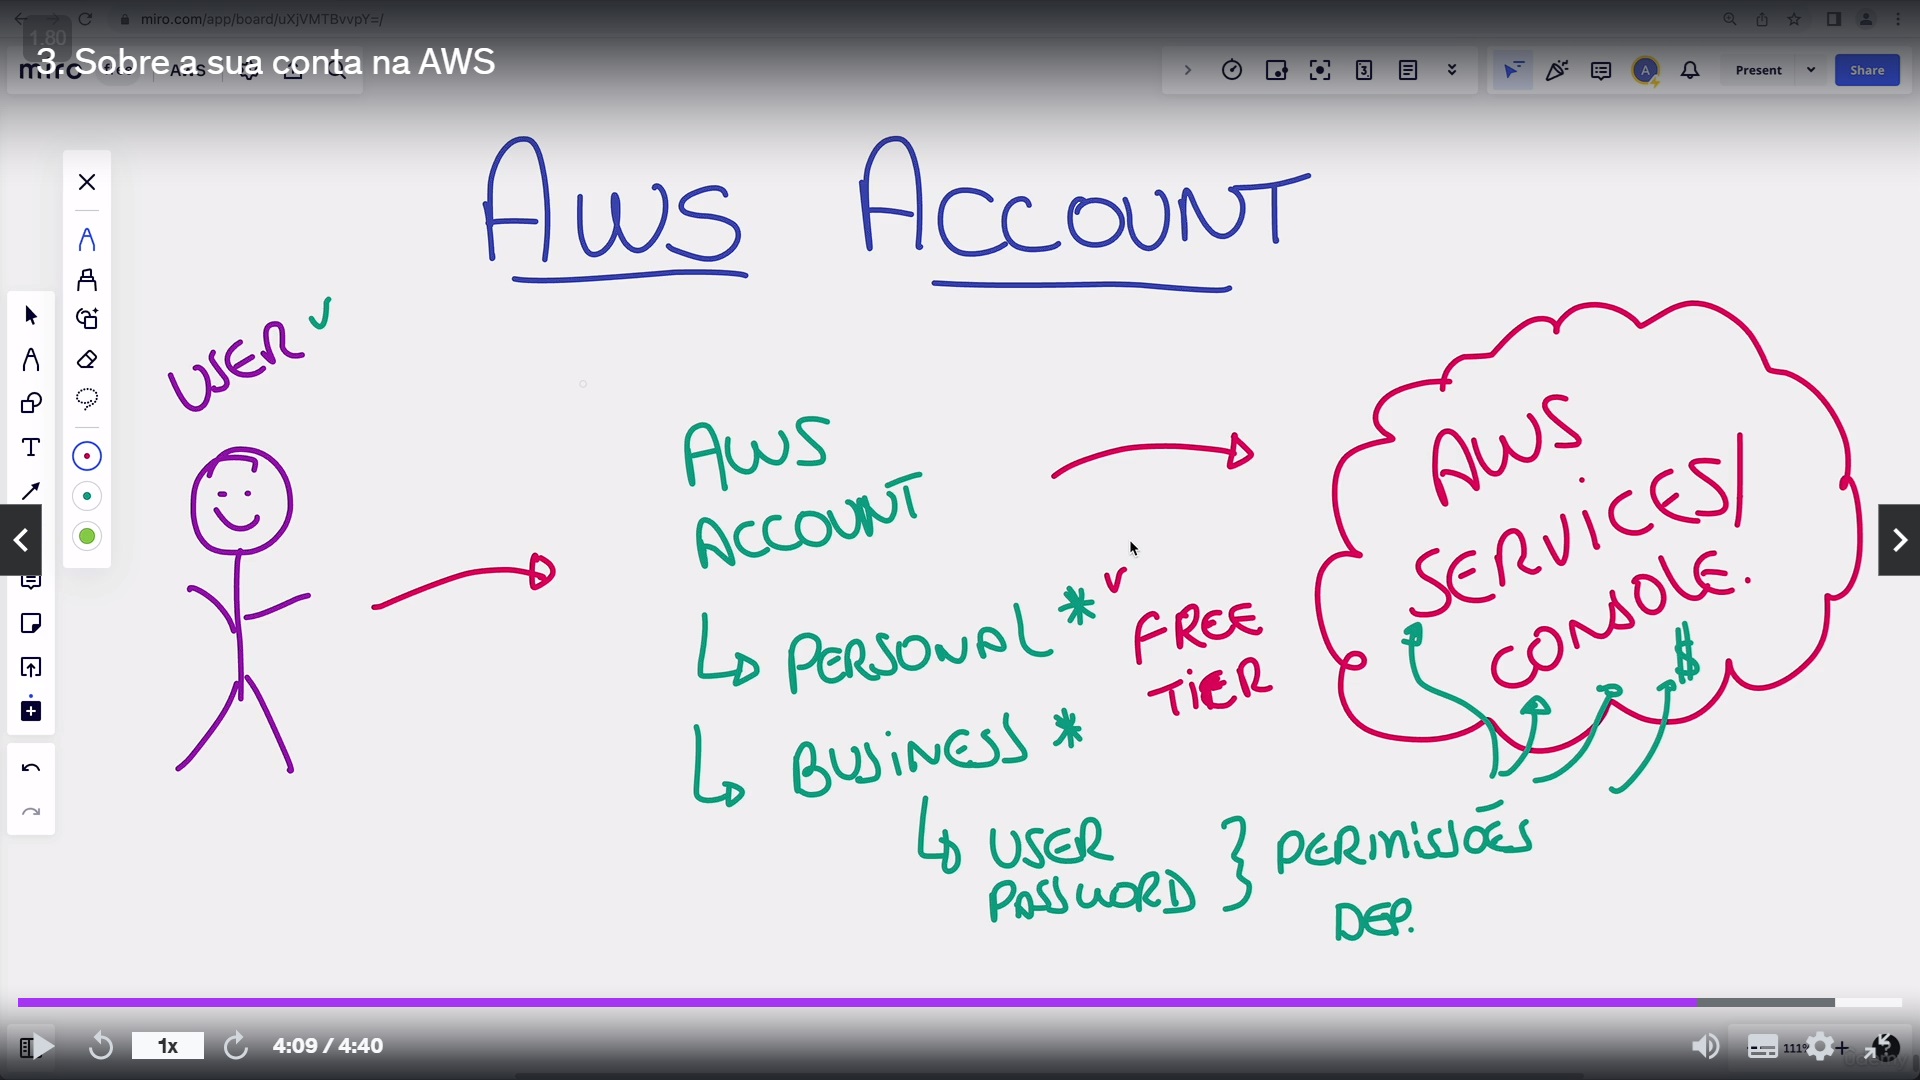 miro.com/app/board/uXjVMTBvvpY=/
1.80
3. Sobre a sua conta na AWS
miro
AWS
3
A
Present
Share
AWS ACCOUNT
USER
T
AWS
ACCOUNT
PERSONAL *
FREE
TIER
BUSINESS *
USER
PASSWORD
} PERMISSÕES
DEP.
AWS
SERVICES/
CONSOLE.
$
1x
4:09 / 4:40
111%
+
?
udemy